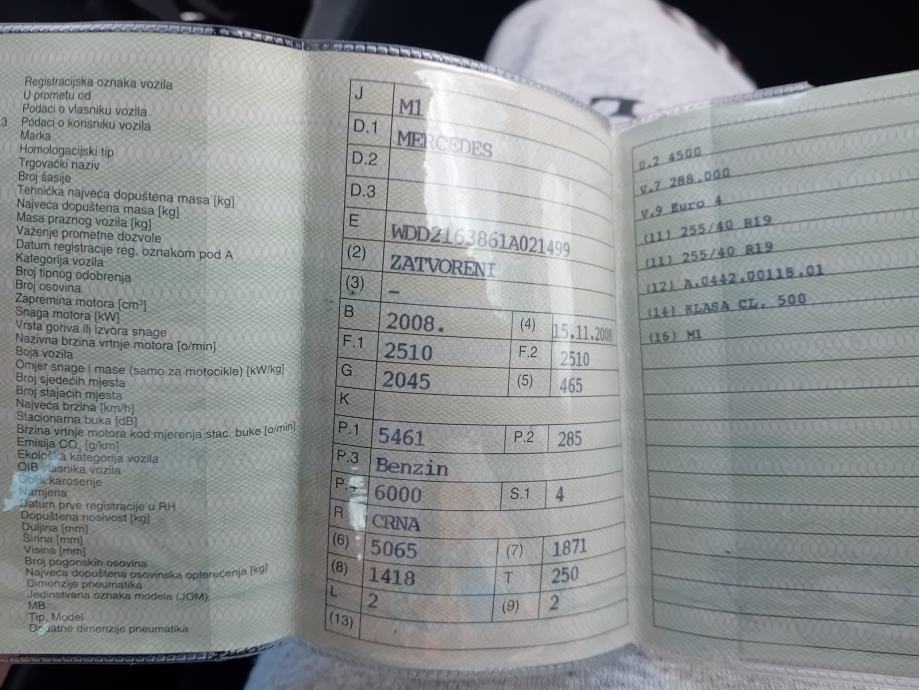 Registracijska oznaka vozila
U prometu od
Podaci o vlasniku vozila
.3 Podaci o korisniku vozila
Marka
Homologacijski tip
Trgovački naziv
Broj šasije
Tehnička najveća dopuštena masa [kg]
Najveća dopuštena masa [kg]
Masa praznog vozila [kg]
Važenje prometne dozvole
Datum registracije reg. oznakom pod A
Kategorija vozila
Broj tipnog odobrenja
Broj osovina
Zapremina motora [cm³]
Snaga motora [kW]
Vrsta goriva ili izvora snage
Nazivna brzina vrtnje motora [o/min]
Boja vozila
Omjer snage i mase (samo za motocikle) [kW/kg]
Broj sjedećih mjesta
Broj stajaćih mjesta
Najveća brzina [km/h]
Stacionarna buka [dB]
Brzina vrtnje motora kod mjerenja stac. buke [o/min]
Emisija CO₂ [g/km]
Ekološka kategorija vozila
OIB vlasnika vozila
Oblik karoserije
Namjena
Datum prve registracije u RH
Dopuštena nosivost [kg]
Duljina [mm]
Širina [mm]
Visina [mm]
Broj pogonskih osovina
Najveća dopuštena osovinska opterećenja [kg]
Dimenzije pneumatika
Jedinstvena oznaka modela (JOM)
MB
Tip, Model
Dodatne dimenzije pneumatika
J M1
D.1 MERCEDES
D.2
D.3
E WDD2163861A021499
(2) ZATVORENI
(3) –
B 2008. (4) 15.11.2008
F.1 2510 F.2 2510
G 2045 (5) 465
K
P.1 5461 P.2 285
P.3 Benzin
P. 6000 S.1 4
R CRNA
(6) 5065 (7) 1871
(8) 1418 T 250
L 2 (9) 2
(13)
0.2 4500
V.7 288.000
V.9 Euro 4
(11) 255/40 R19
(11) 255/40 R19
(12) A.0442.00118.01
(14) KLASA CL. 500
(16) M1